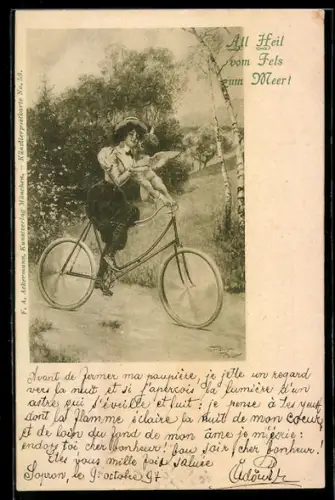 All Heil
vom Fels
zum Meer!
F. A. Ackermann, Kunstverlag München. — Künstlerpostkarte No. 53.
Avant de fermer ma paupière, je jète un regard
vers la nuit et si j'aperçois la lumière d'un
astre qui s'éveille et luit; je pense à tes yeux
dont la flamme éclaire la nuit de mon coeur
et de loin du fond de mon âme je m'écrie:
endors toi cher bonheur! fau soir, cher bonheur!
Etes vous mille fois saluée
Sopron, le 9 octobre 97